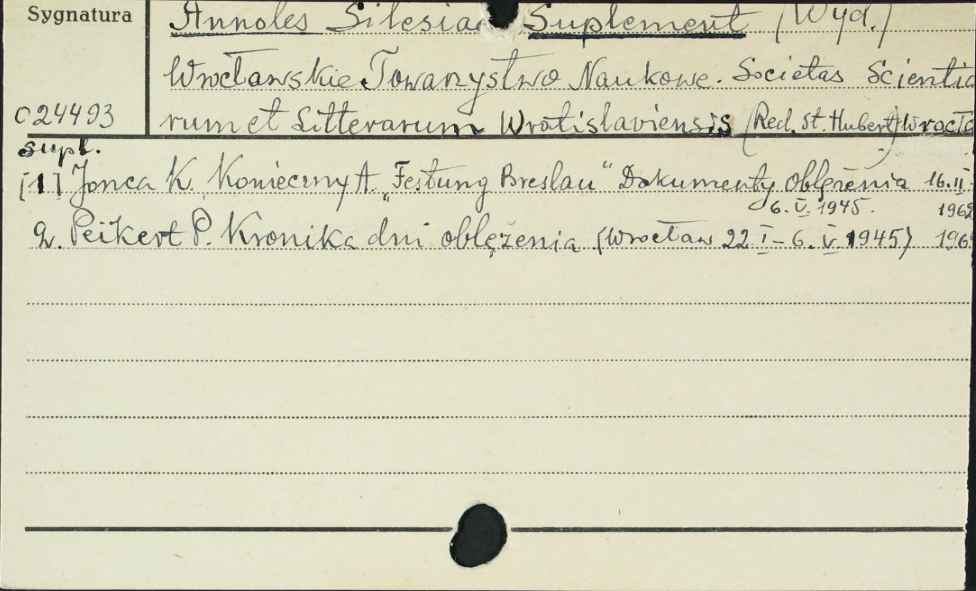 Sygnatura
Annales Silesiae Suplement (Wyd.)
Wrocławskie Towarzystwo Naukowe. Societas Scientia
C24493
rum et Litterarum Wratislaviensis (Red. St. Hubert) Wrocła
supl.
[1] Jonca K. Konieczny A. „Festung Breslau" Dokumenty oblężenia 16.II-
6.V.1945.
2. Peikert P. Kronika dni oblężenia (Wrocław 22 I - 6. V 1945) 196